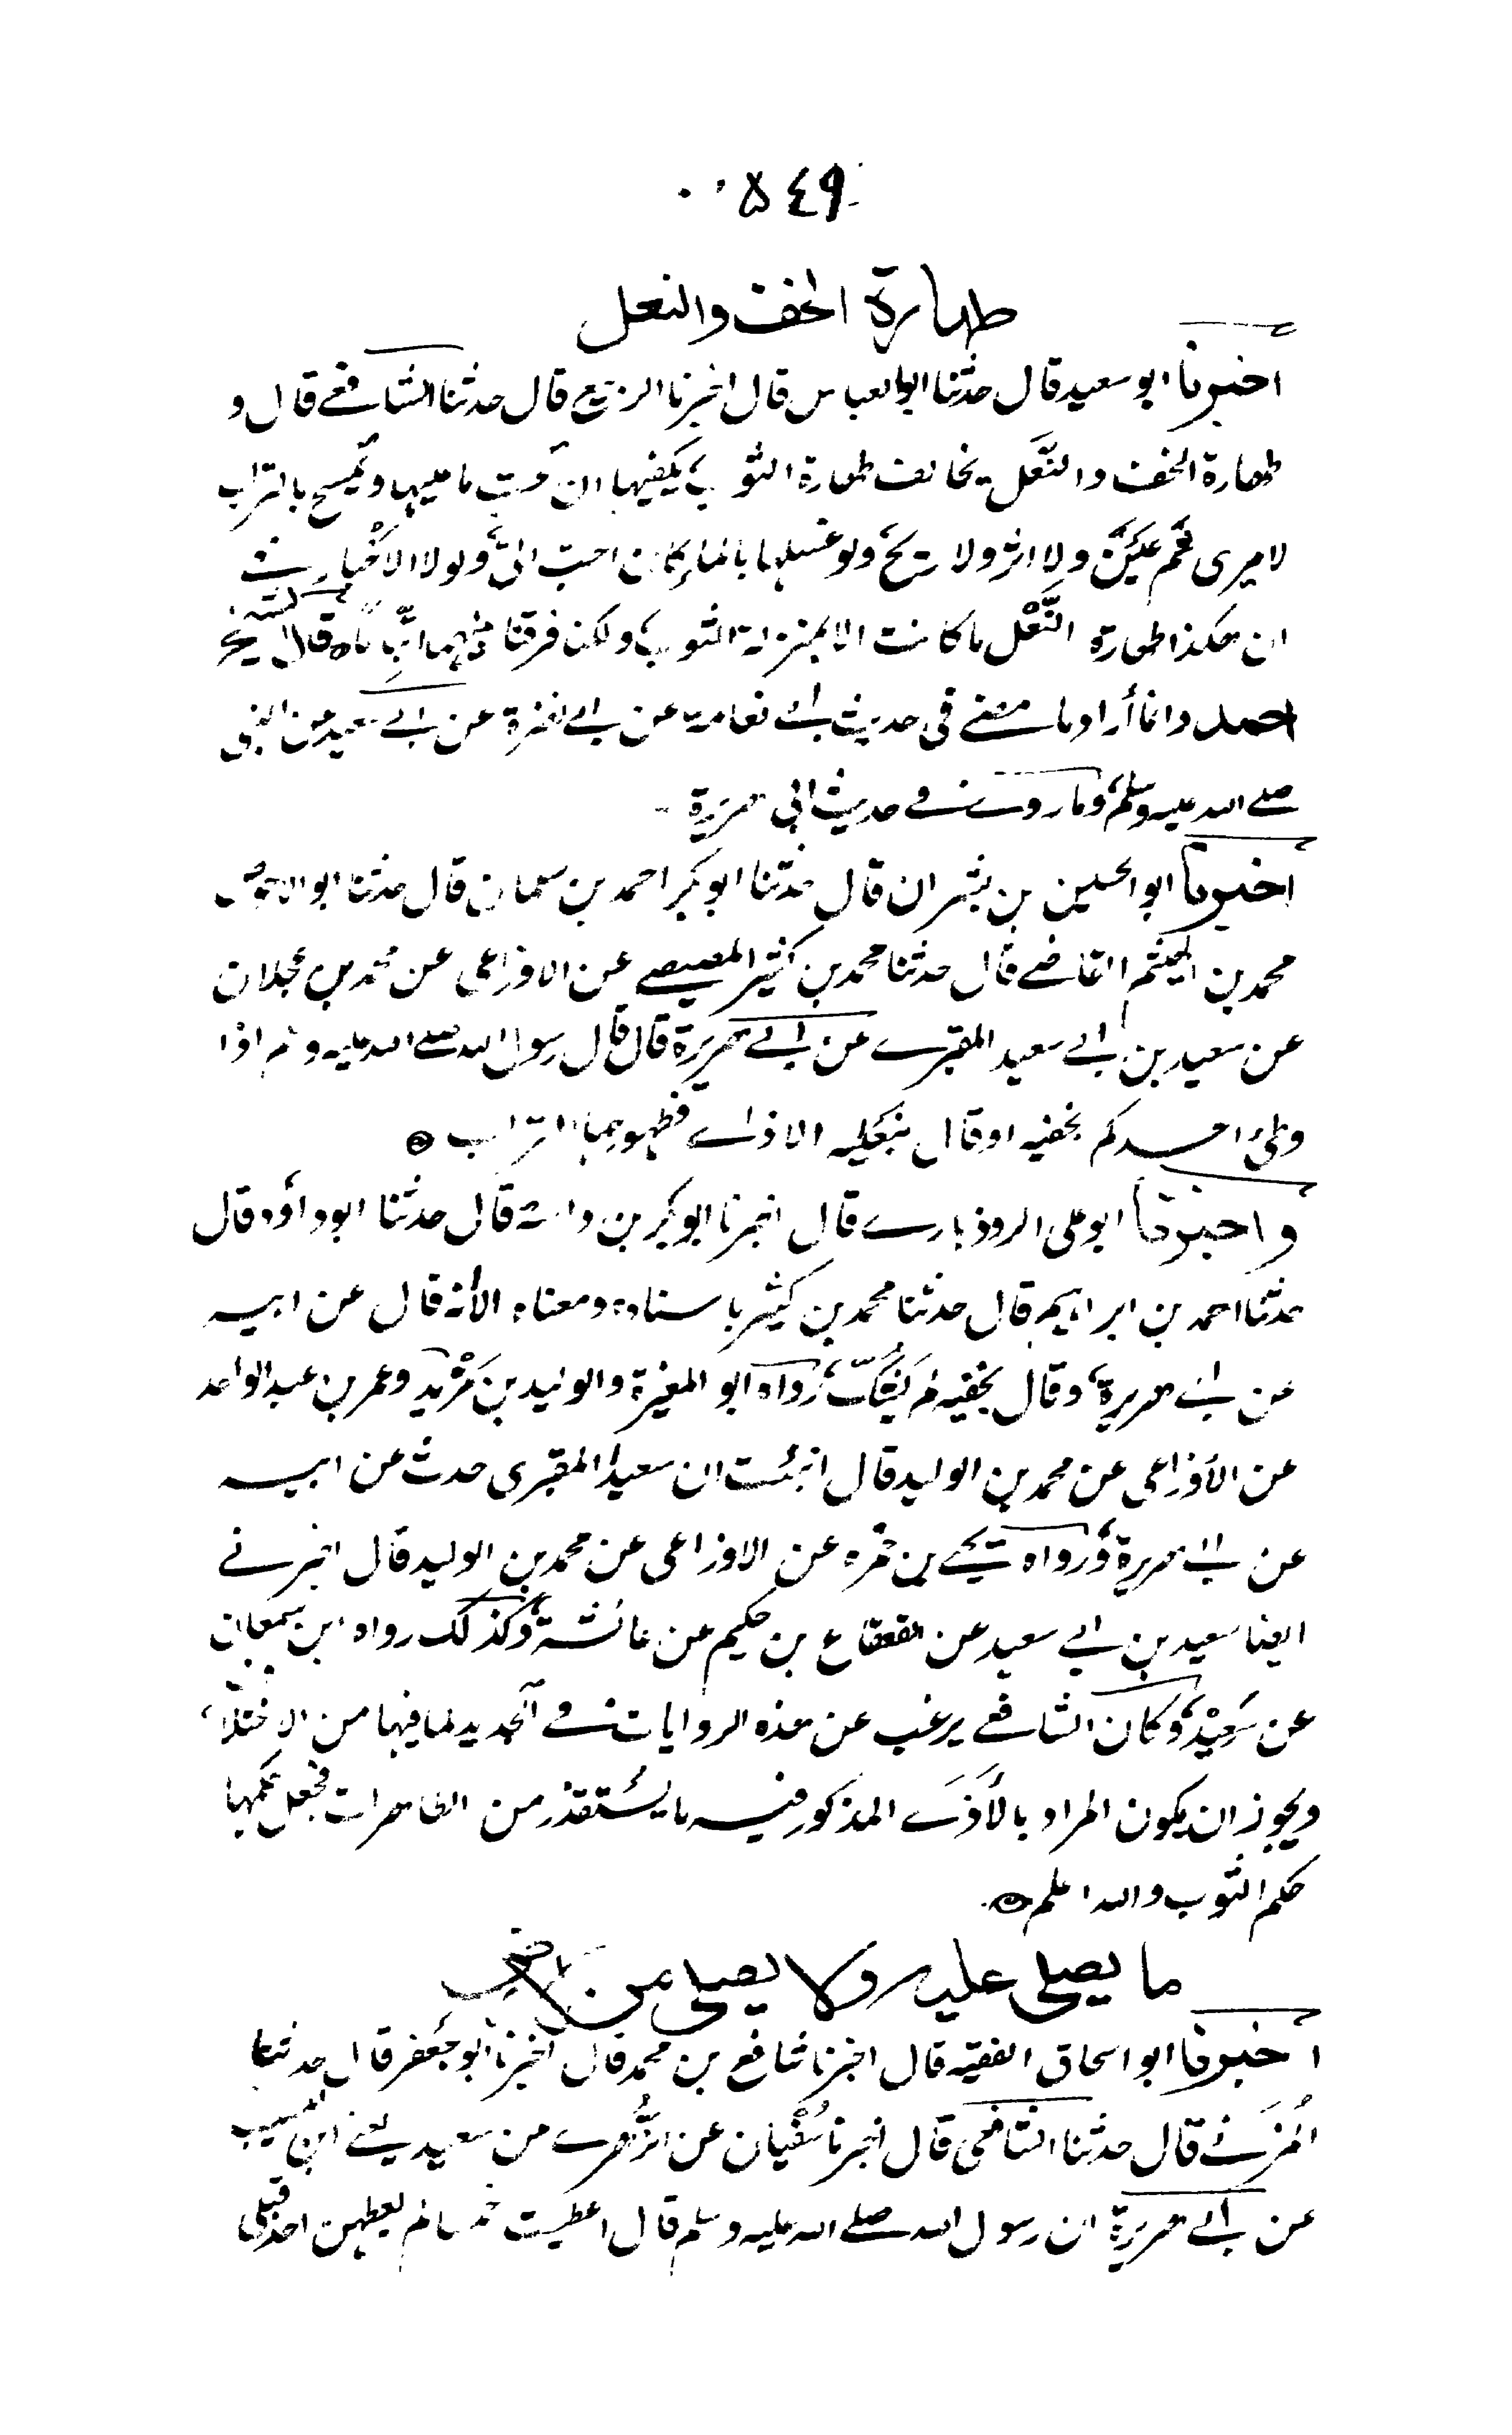 ٥٤٩
طهارة الخف والنعل
اخبرنا ابو سعيد قال حدثنا ابو العباس قال اخبرنا الربيع قال حدثنا الشافعي قال و
طهارة الخف والنعل يخالف طهارة الثوب يكفيها ان ما عليها و يمسح بالتراب
لا يرى ثم عين ولا اثر ولا ريح ولو غسلها بالماء كان احب الي ولولا الاخبار
ان هكذا طهارة النعل ما كانت الا بمنزلة الثوب ولكن فرقنا قال الشيخ
احمد وانما أراد ما مضى في حديث ابي نعامة عن ابي نضرة عن ابي سعيد عن النبي
صلى الله عليه وسلم وما روي في حديث ابي هريرة
اخبرنا ابو الحسين بن بشران قال حدثنا ابو بكر احمد بن سلمان قال حدثنا ابو الاحوص
محمد بن الهيثم القاضي قال حدثنا محمد بن كثير المصيصي عن الاوزاعي عن محمد بن عجلان
عن سعيد بن ابي سعيد المقبري عن ابي هريرة قال قال رسول الله صلى الله عليه وسلم اذا
وطئ احدكم بخفيه او قال بنعليه الاذى فطهورهما التراب
واخبرنا ابو علي الروذباري قال اخبرنا ابو بكر بن داسة قال حدثنا ابو داؤد قال
حدثنا احمد بن ابراهيم قال حدثنا محمد بن كثير باسناده ومعناه الا أنه قال عن ابيه
عن ابي هريرة وقال بخفيه لم يشك رواه ابو المغيرة والوليد بن مزيد وعمر بن عبد الواحد
عن الأوزاعي عن محمد بن الوليد قال انبئت ان سعيدا المقبري حدث عن ابيه
عن ابي هريرة ورواه يحيى بن حمزه عن الاوزاعي عن محمد بن الوليد قال اخبرني
ايضا سعيد بن ابي سعيد عن القعقاع بن حكيم عن عائشة وكذلك رواه ابن سمعان
عن سعيد وكان الشافعي يرغب عن هذه الروايات في الجديد لما فيها من الاختلاف
ويجوز ان يكون المراد بالأذى المذكور فيه ما يستقذر من الطاهرات فجعل حكمها
حكم الثوب والله اعلم
ما يصلى عليه ولا يصلى من الارض
اخبرنا ابو اسحاق الفقيه قال اخبرنا شافع بن محمد قال اخبرنا أبو جعفر قال حدثنا
المزني قال حدثنا الشافعي قال اخبرنا سفيان عن الزهري عن سعيد يعني ابن المسيب
عن ابي هريرة ان رسول الله صلى الله عليه وسلم قال اعطيت خمسا لم يعطهن احد قبلي